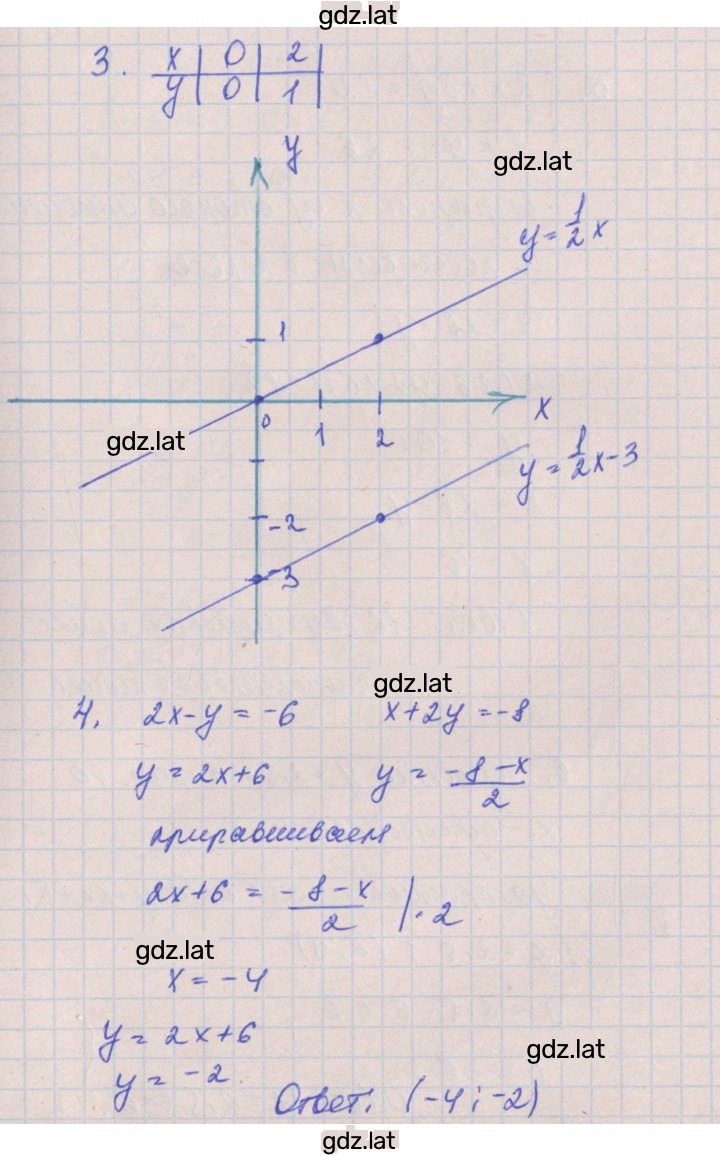 gdz.lat
3. x | 0 | 2 |
y | 0 | 1 |
y
gdz.lat
y = 1/2 x
1
0 1 2 x
gdz.lat
y = 1/2 x - 3
-2
-3
gdz.lat
4. 2x - y = -6 x + 2y = -8
y = 2x + 6 y = (-8 - x)/2
приравниваем
2x + 6 = (-8 - x)/2 | · 2
gdz.lat
x = -4
y = 2x + 6
gdz.lat
y = -2
Ответ: (-4; -2)
gdz.lat